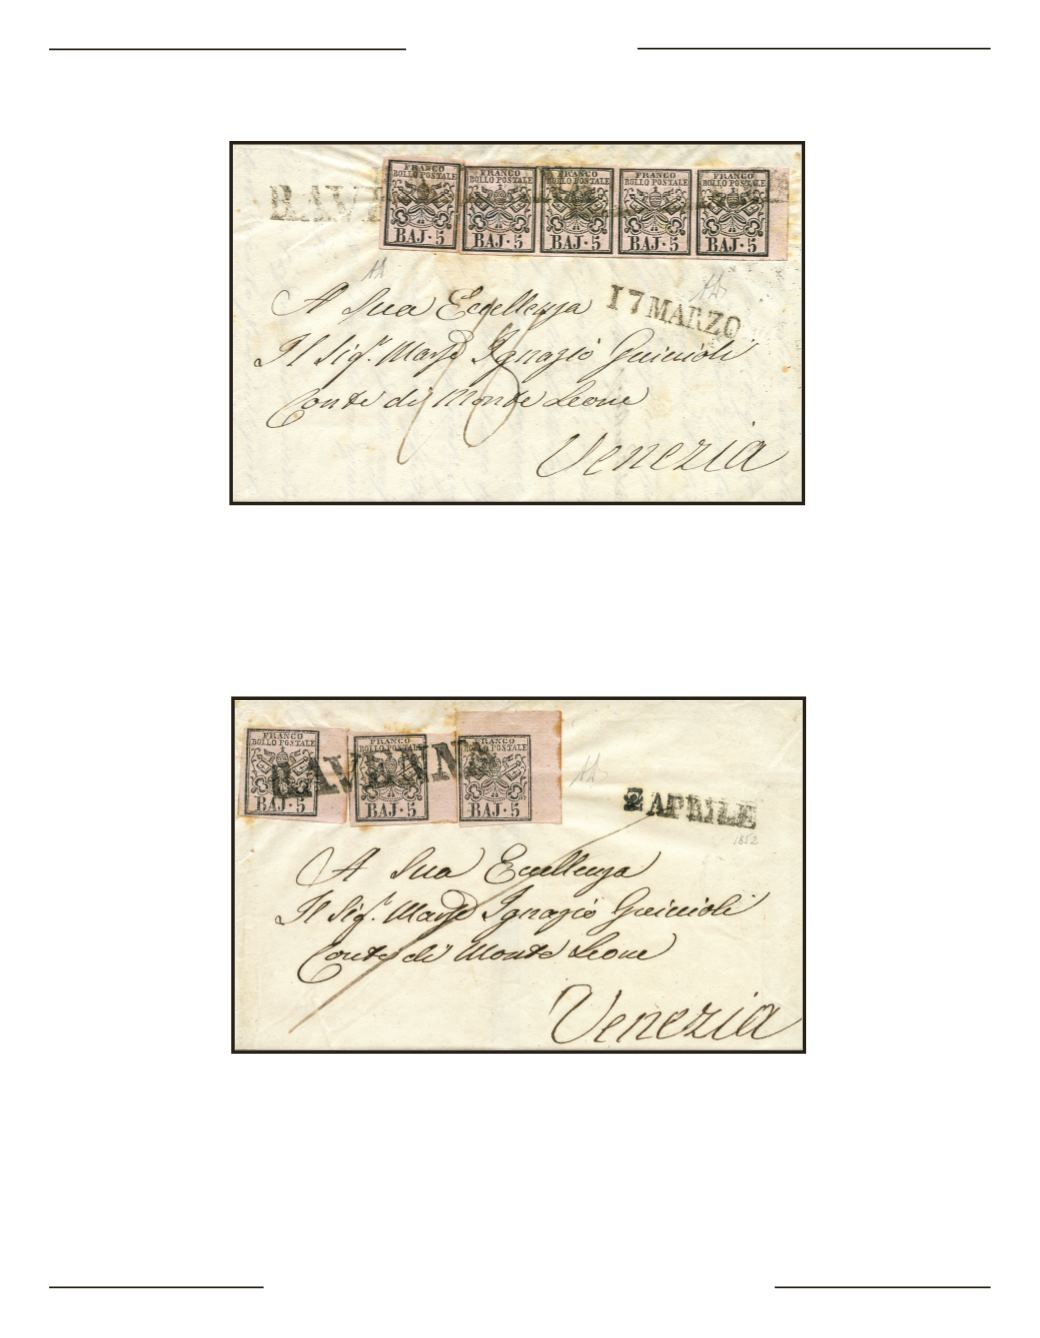 FRANCO FRANCO FRANCO FRANCO FRANCO
BOLLO POSTALE BOLLO POSTALE BOLLO POSTALE BOLLO POSTALE BOLLO POSTALE
BAJ·5 BAJ·5 BAJ·5 BAJ·5 BAJ·5
17 MARZO
A Sua Eccellenza
Il Sigr. Ignazio Guiccioli
Conte di Monte Leone
Venezia
FRANCO FRANCO FRANCO
BOLLO POSTALE BOLLO POSTALE BOLLO POSTALE
RAVENNA
BAJ·5 BAJ·5 BAJ·5
2 APRILE
1852
A Sua Eccellenza
Il Sigr. Ignazio Guiccioli
Conte di Monte Leone
Venezia